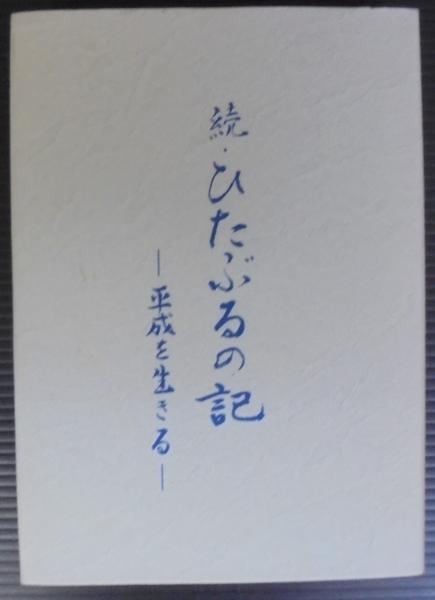 続・ひたぶるの記
―平成を生きる―